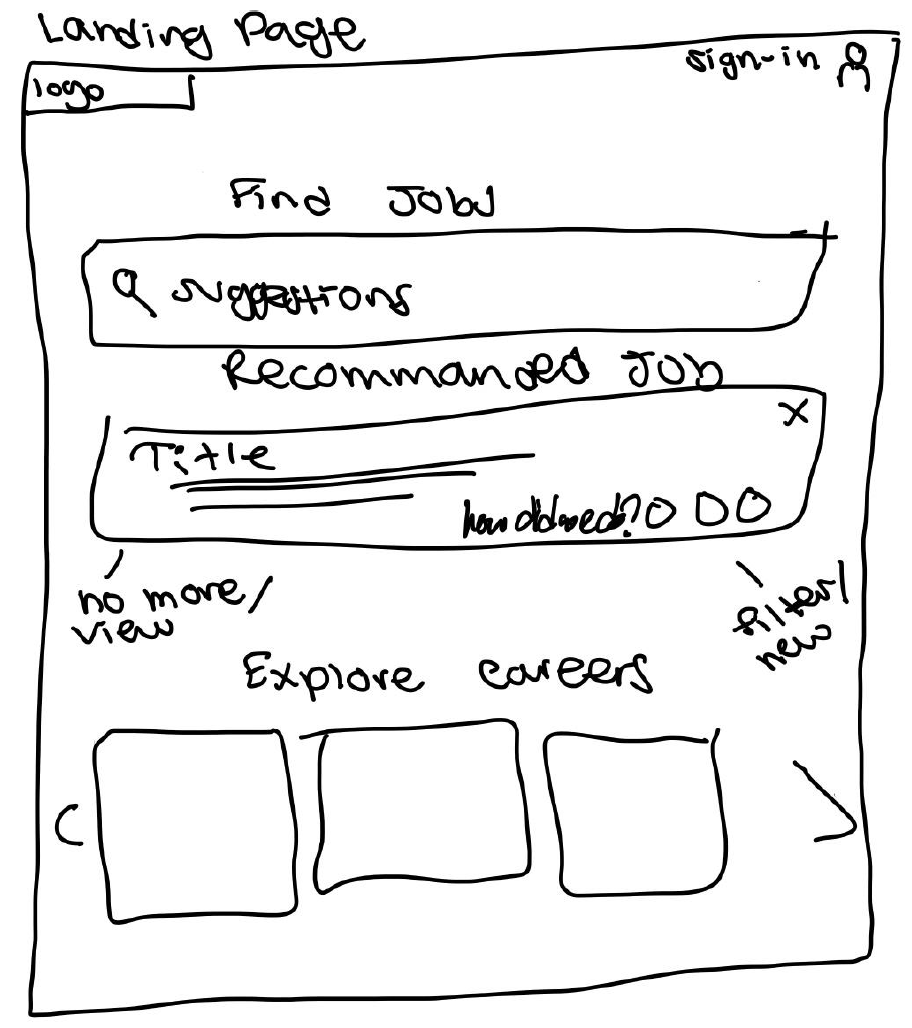 Landing Page
logo
sign-in
Find Jobs
suggestions
Recommanded Job
X
Title
no more/
view
filter/
new
Explore careers